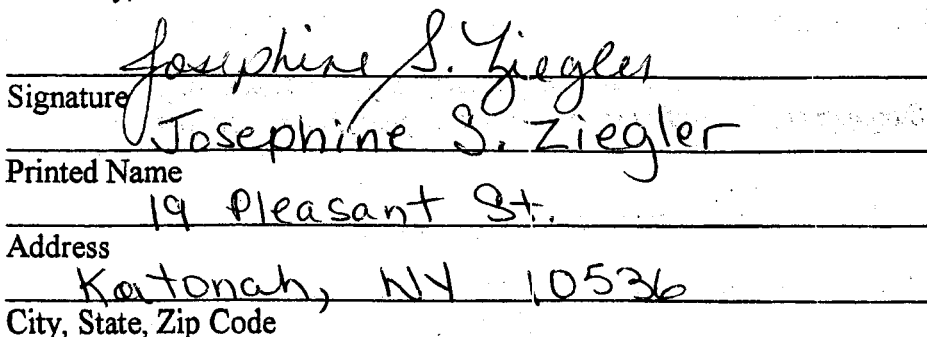 Josephine S. Ziegler
Signature
Josephine S. Ziegler
Printed Name
19 Pleasant St.
Address
Katonah, NY 10536
City, State, Zip Code